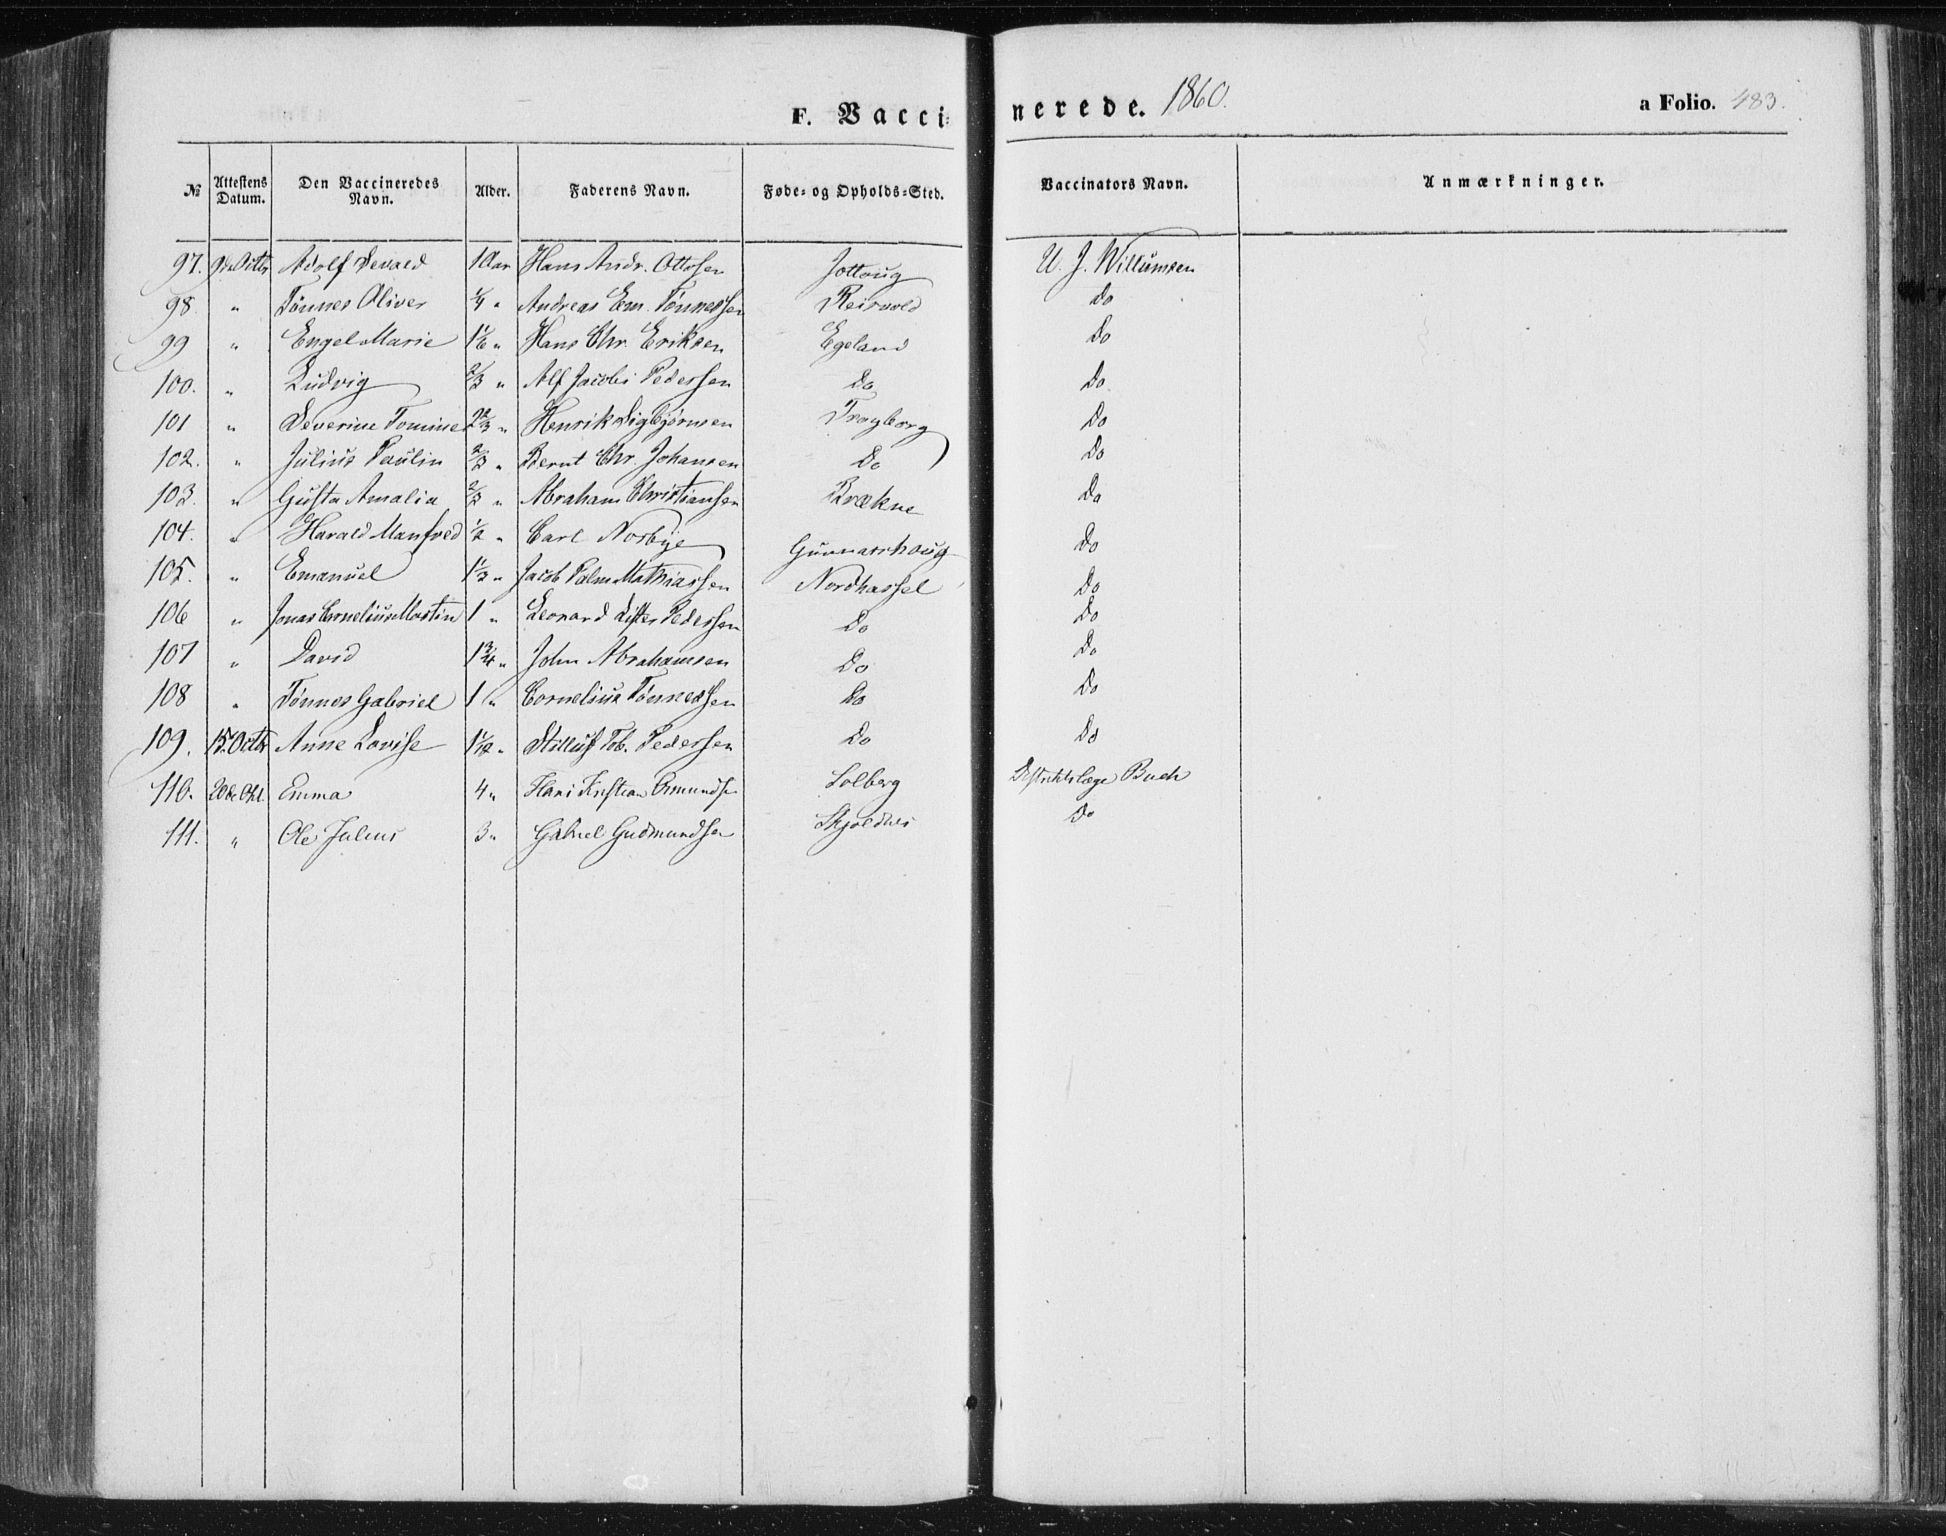 F. Vaccinerede. 1860. a Folio. 483.
№ Attestens Datum. Den Vaccineredes Navn. Alder. Faderens Navn. Føde- og Opholds-Sted. Vaccinators Navn. Anmærkninger.
97. 9de Octbr Adolf Sevald 1 Aar Hans Andr. Ottosen Jottoug U. J. Willumsen
98. " Tönnes Oliver 1/4 " Andreas Em. Tönnessen Reisvold Do
99 " Engel Marie 1 1/6 " Hans Chr. Eriksen Egeland Do
100. " Ludvig 2/3 " Alf Jacobi Pederssen Do Do
101 " Severine Tomine 2 2/3 " Henrik Sigbjørnsen Trogborg Do
102. " Julius Paulin 2/3 " Bernt Chr. Johansen Do Do
103. " Gusta Amalia 2/3 " Abraham Christianssen Brækne Do
104. " Harald Manfred 1/2 " Carl Nosbye Gunnarshoug Do
105. " Emanuel 1 1/3 " Jacob Palm Mathiassen Nordhassel Do
106 " Jonas Cornelius Martin 1 " Leonard Lister Pederssen Do Do
107 " David 1 3/4 " John Abrahamsen Do Do
108 " Tönnes Gabriel 1 " Cornelius Tönnessen Do Do
109. 15. Octbr Anne Lovise 1 1/12 " Stilluf Tob. Pederssen Do Do
110. 20de Okt. Emma 4 " Hans Kristian Omundsn Solberg Distriktslæge Buch
111. " Ole Julius 3 " Gabriel Gudmundsen Skjoldnes Do